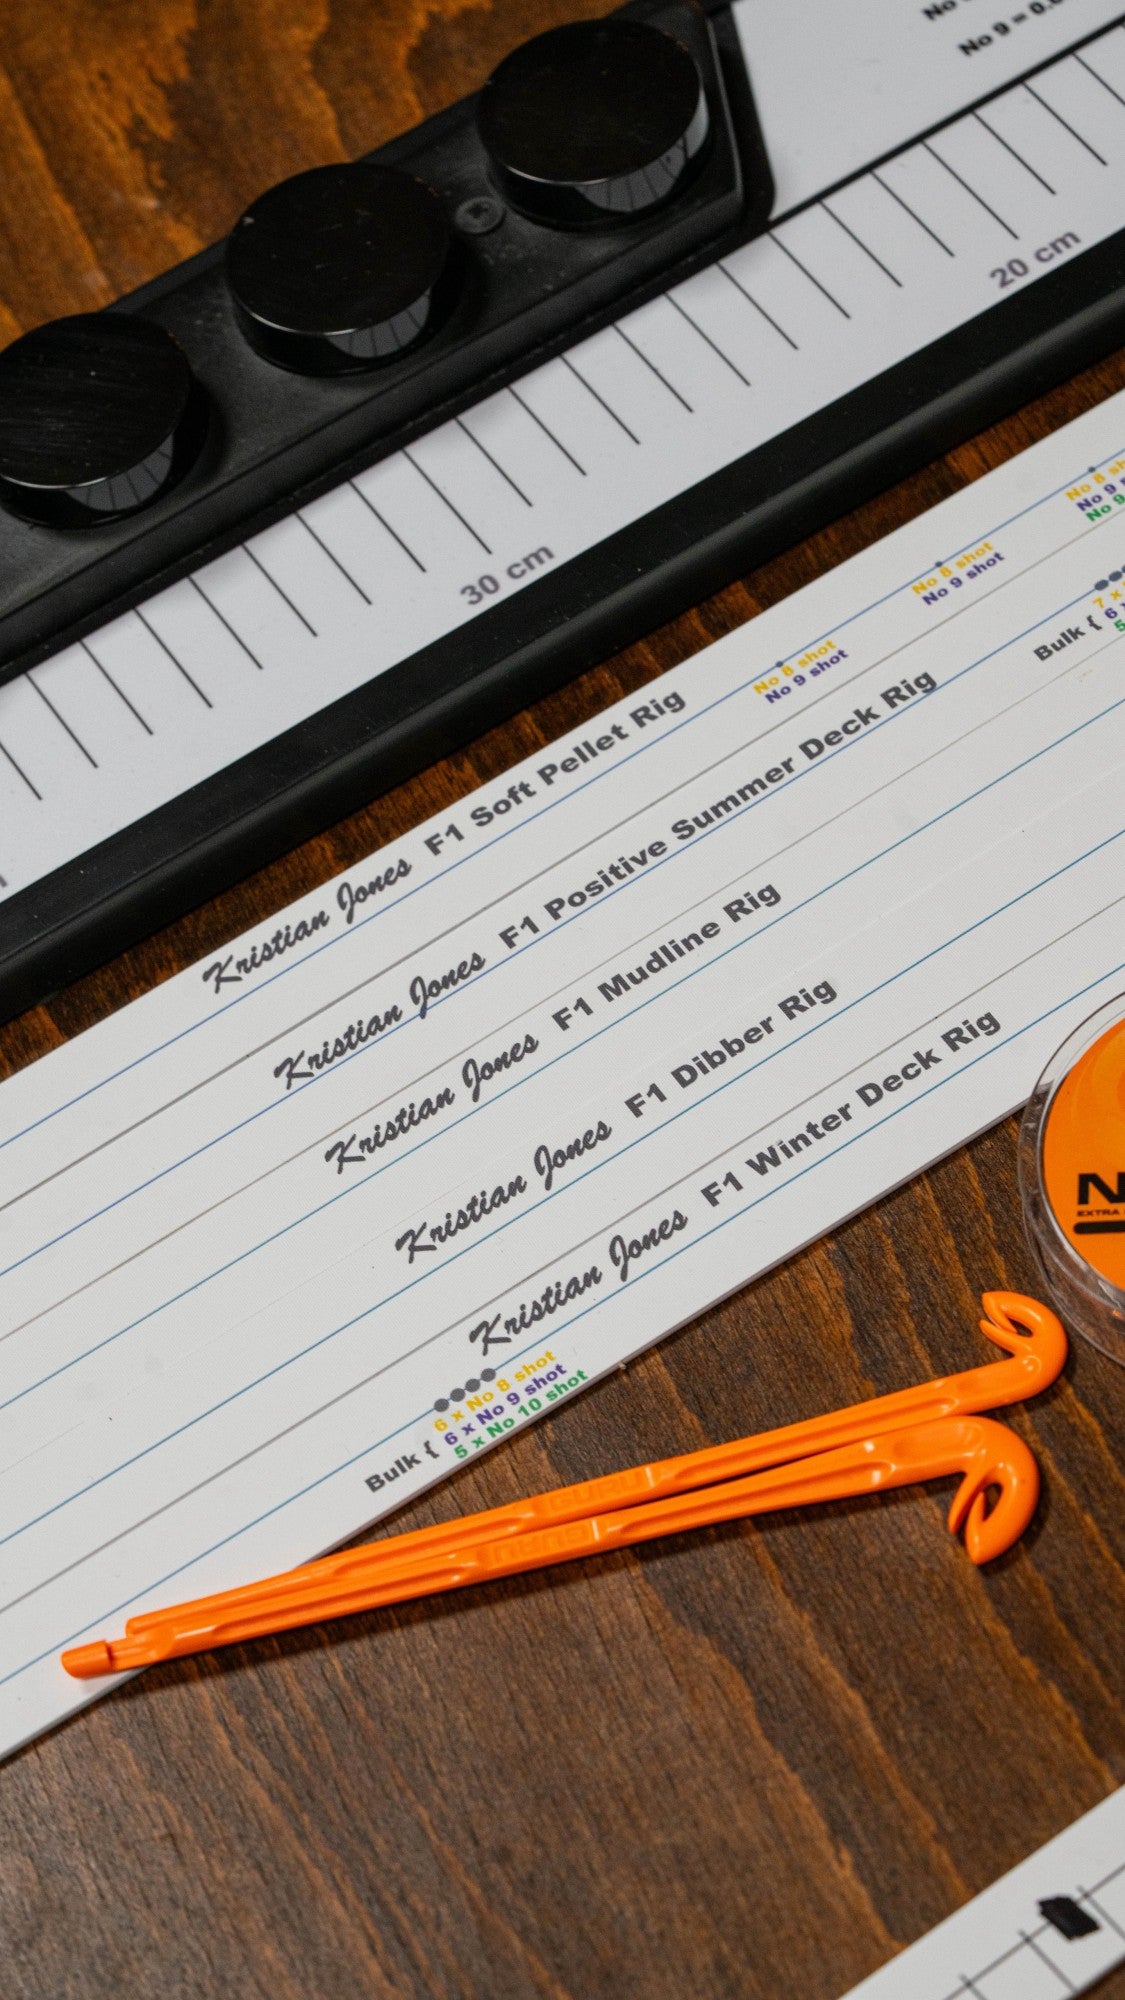 No 9 = 0.
20 cm
30 cm
No 8 shot
No 9 shot
No 9
No 8 shot
No 9 shot
No 8 shot
No 9 shot
Kristian Jones F1 Soft Pellet Rig
Bulk {
7 x
6 x
5
Kristian Jones F1 Positive Summer Deck Rig
Kristian Jones F1 Mudline Rig
Kristian Jones F1 Dibber Rig
Kristian Jones F1 Winter Deck Rig
Bulk {
6 x No 8 shot
6 x No 9 shot
5 x No 10 shot
EXTRA
GURU
GURU